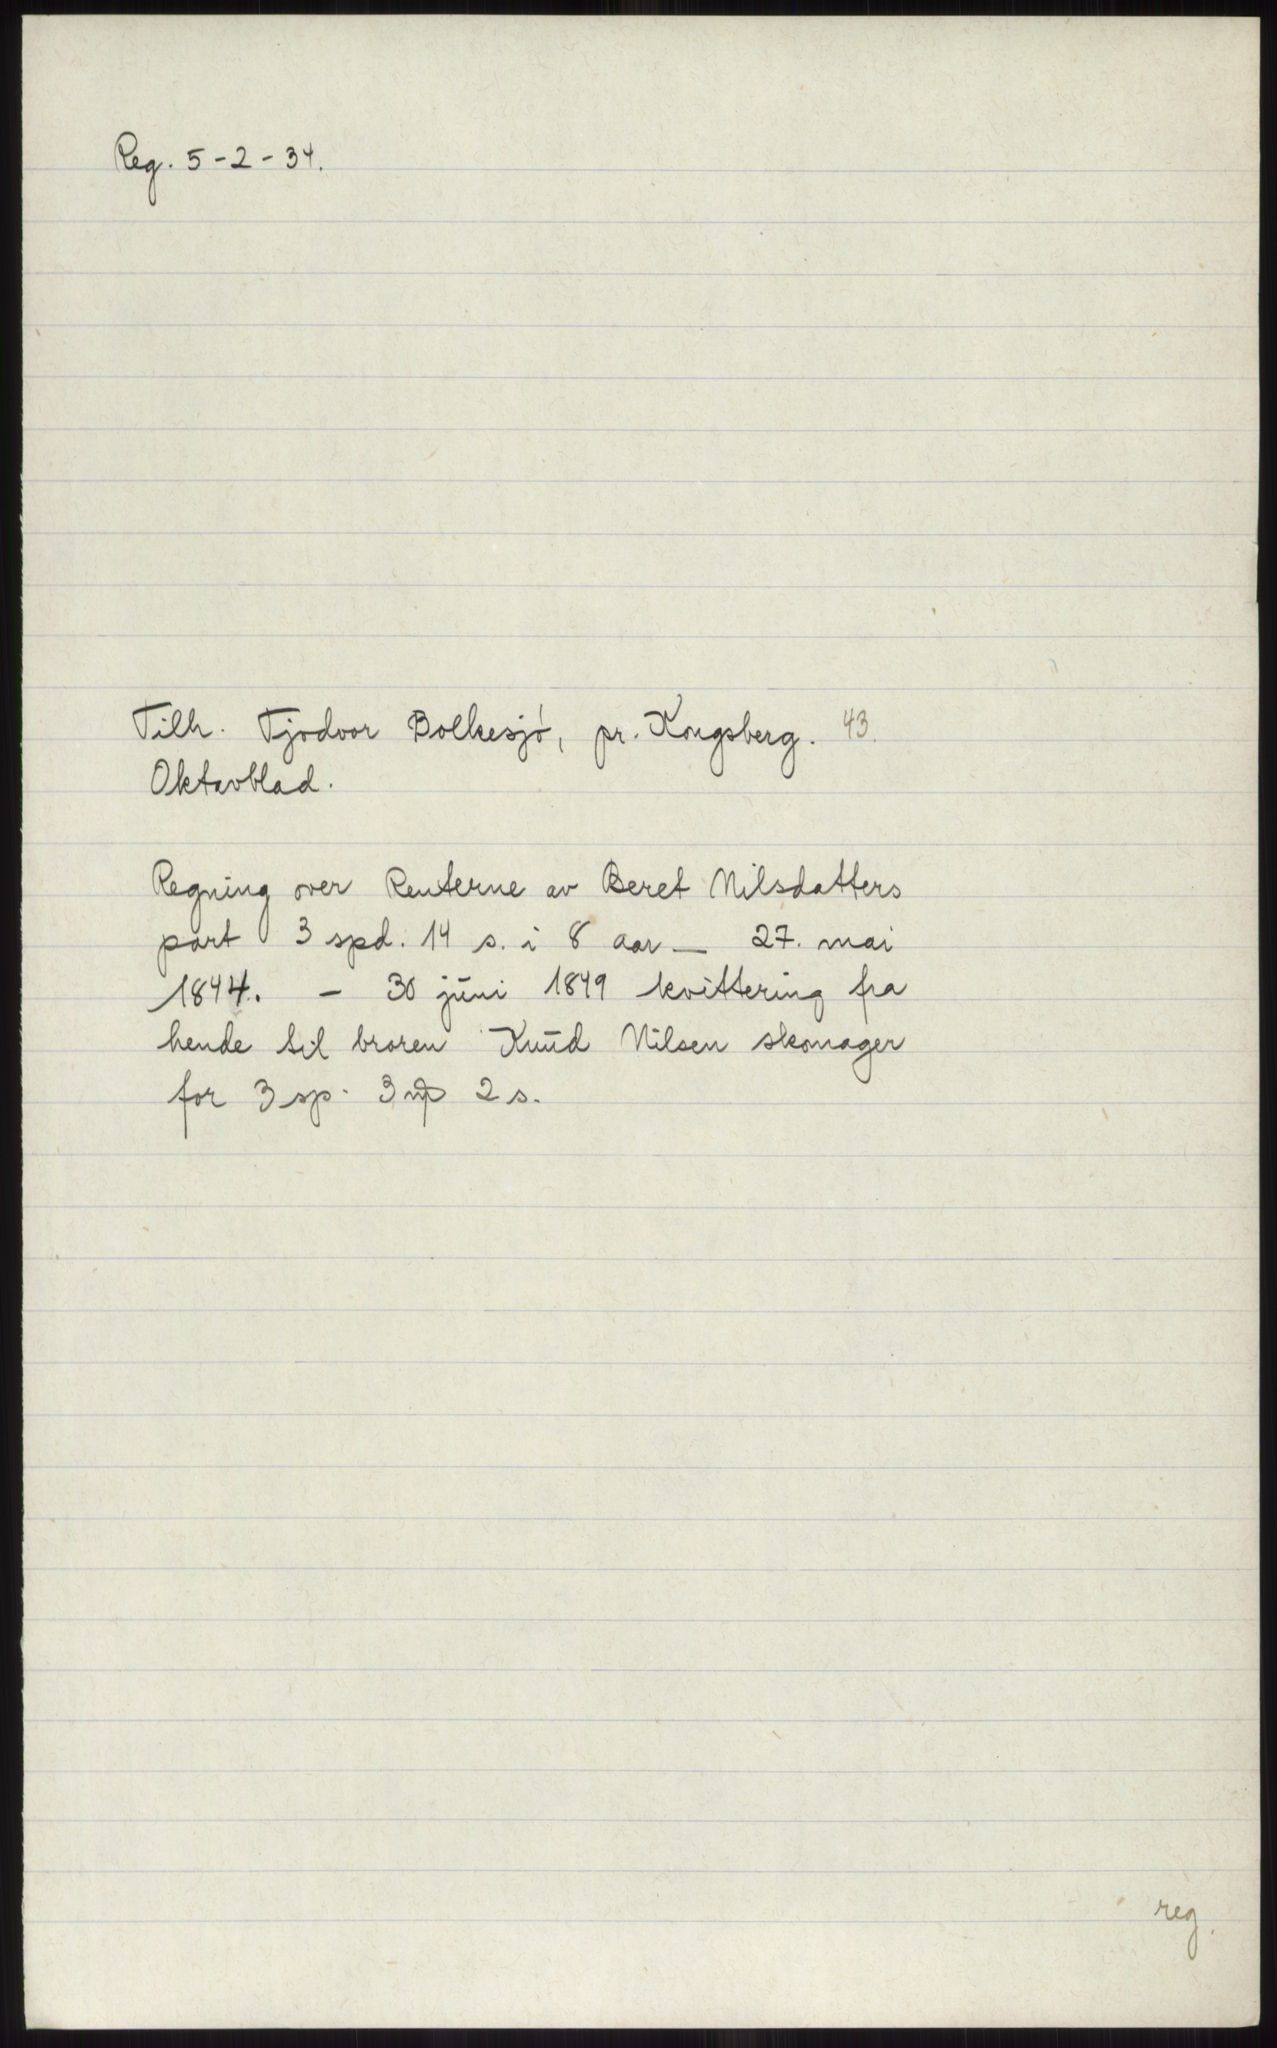 Reg. 5-2-34.
Tilh. Tjodvor Bolkesjø, pr. Kongsberg. 43.
Oktavblad.
Regning over Renterne av Beret Nilsdatters
part 3 spd. 14 s. i 8 aar — 27. mai
1844. — 30 juni 1849 kvittering fra
hende til broren Knud Nilsen skomager
for 3 sp. 3 2 s.
reg.